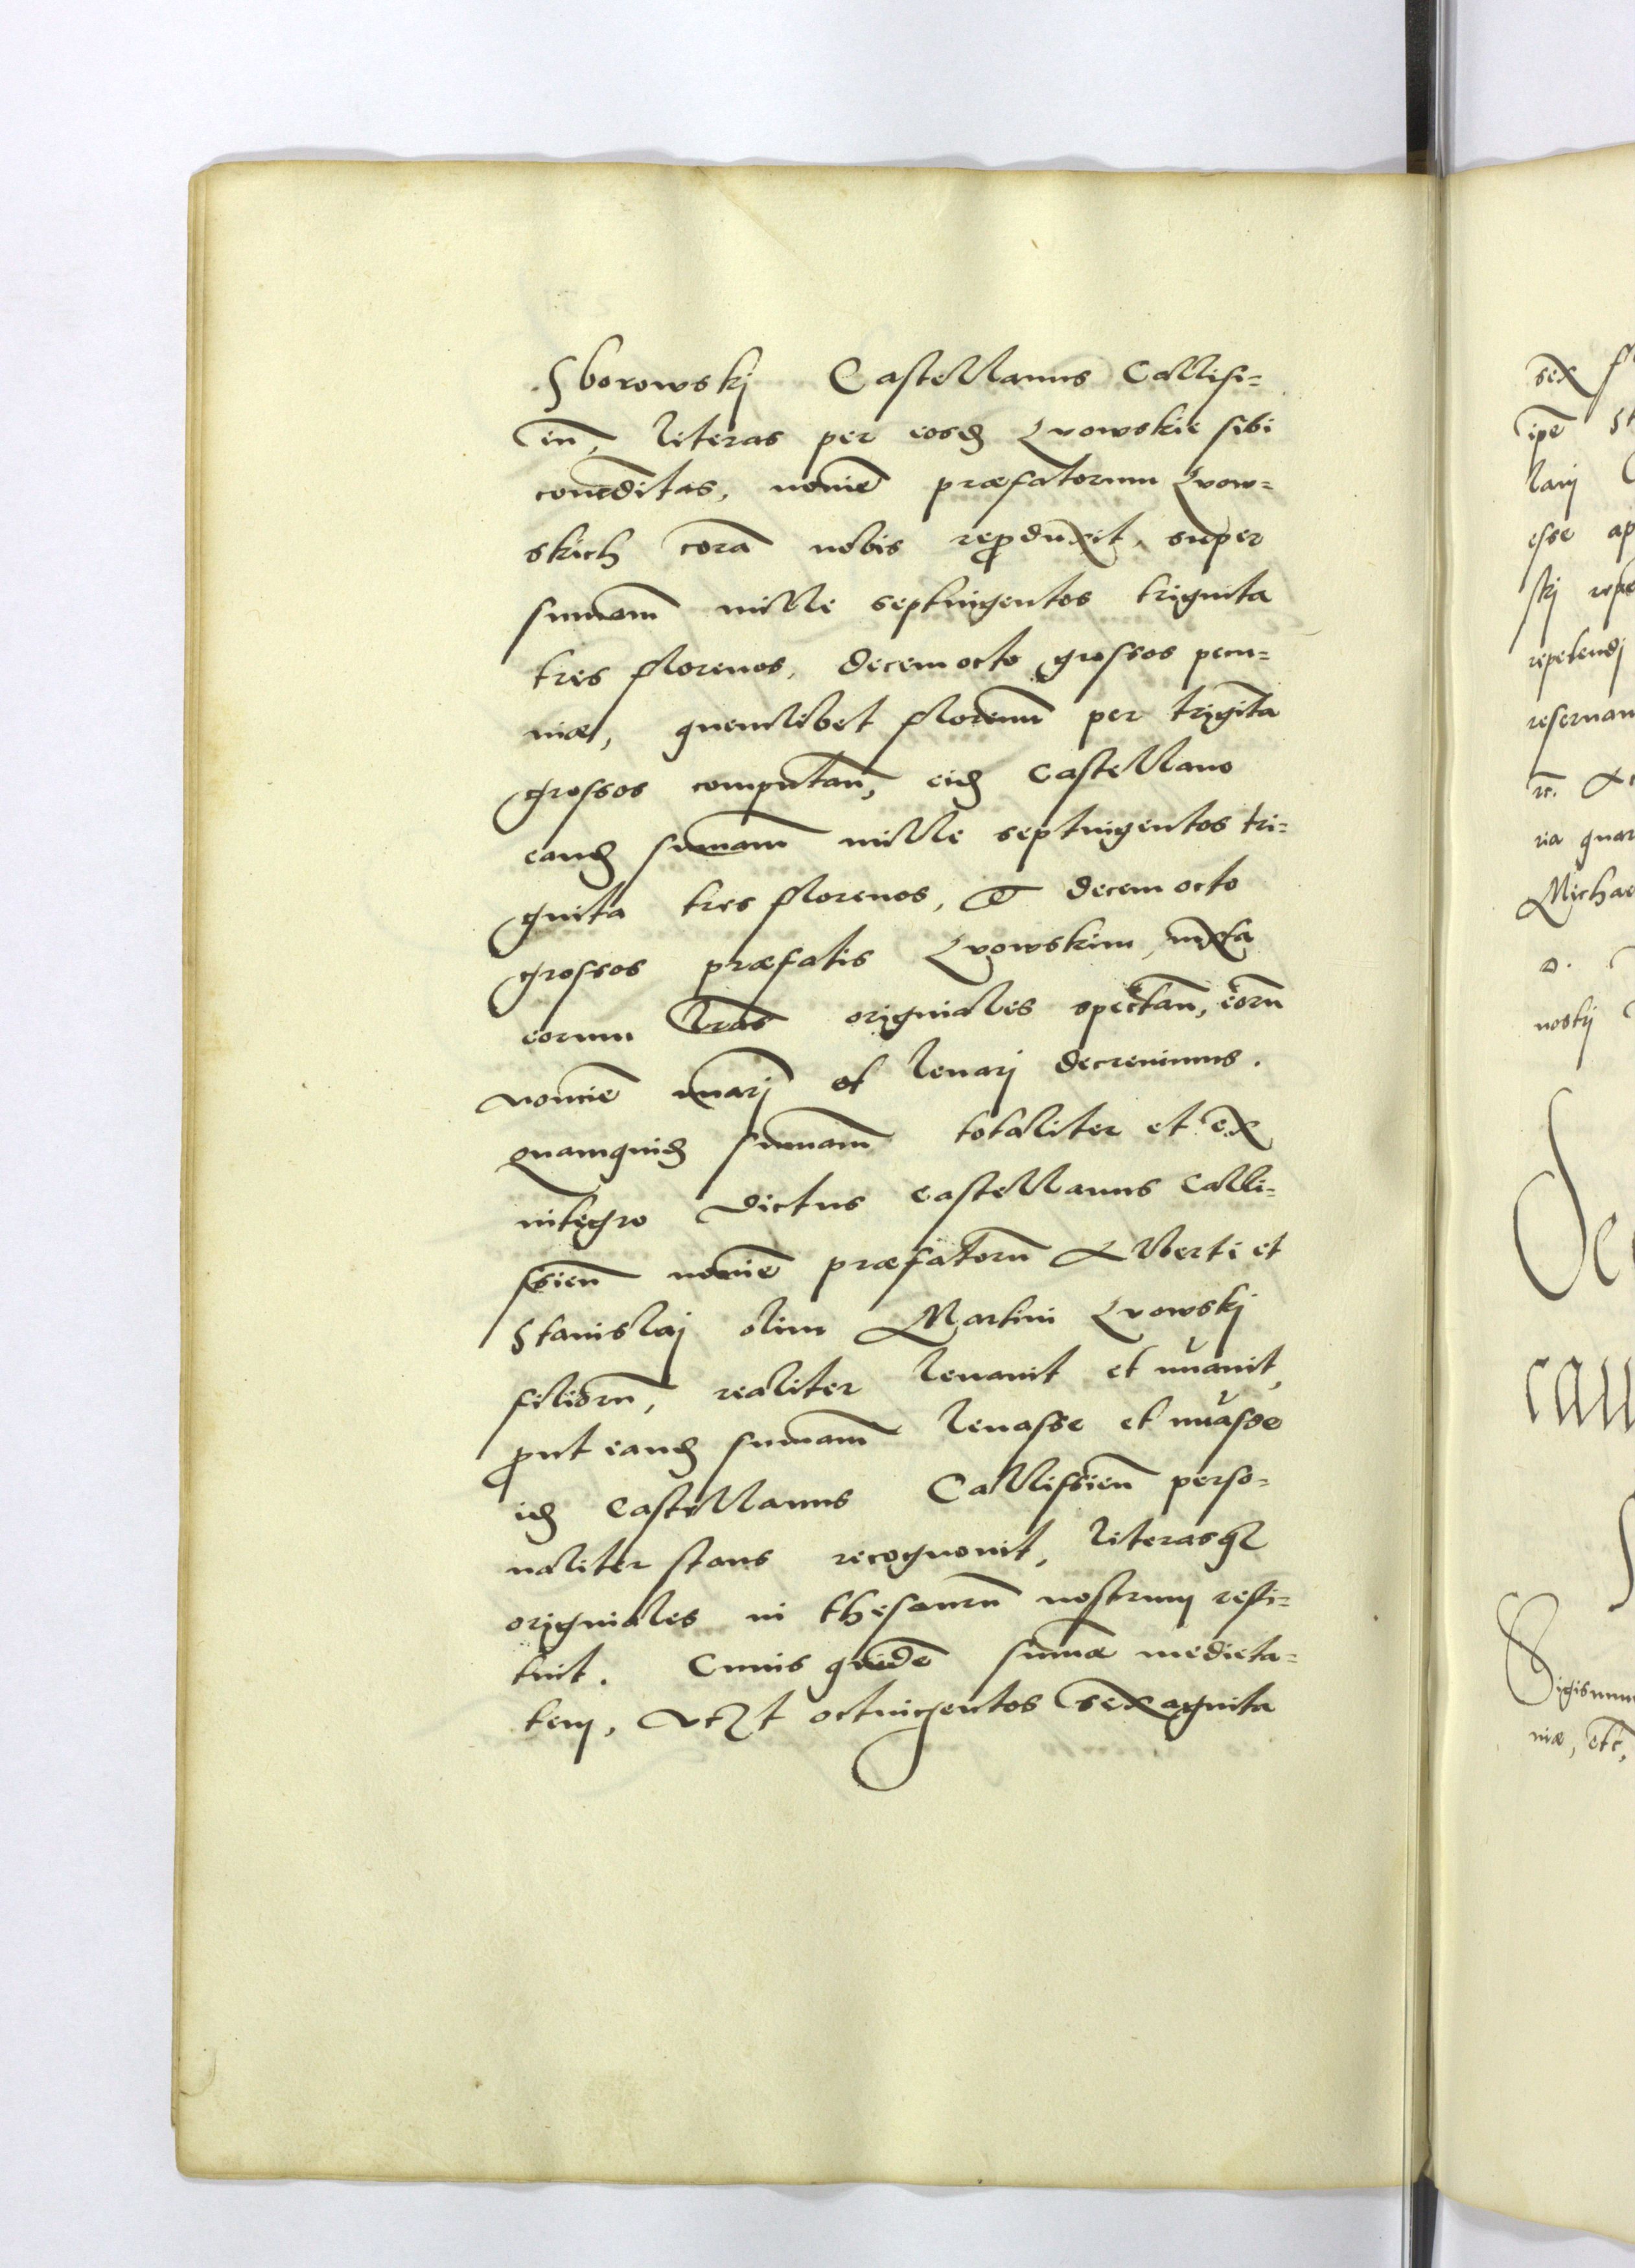 Sborowskj Castellanus Callisi=
eñ, literas per eosđ Lwowskie sibi
concreditas, noīe præfatorum Lwow=
skich corã nobis reproduxit, super
summam mille septingentos triginta
tres florenos, decemocto grossos pecu=
niæ, quemlibet florenum per triginta
grossos computañ, eiđ Castellano
eanđ sum̃am mille septingentos tri=
ginta tres florenos, et decem octo
grossos præfatis Lwowskim, iuxta
eorum l̃ras originales spectañ, eorũ
nomie leuarj decreuimus.
quamquiđ sum̃am totaliter et ex
integro dictus castellanus Calli=
ssieñ noīe præfatorũ Alberti et
Stanislaj olim Martini Lwowskj
filiorũ, realiter leuauit et nũauit,
prout eanđ sum̃am leuasse et nũasse
iđ Castellanus Callissieñ perso=
naliter stans recognouit, literasq̃
originales in thesaurũ nostrum resti=
tuit. Cuius quidẽ sum̃æ medieta=
tem, octingentos sexaginta
sex
ipẽ
larij
esse
skj
repetendj
reseruan
rc̃.
ria quar
Michae
D.
nostrj
De
cau
Sigismun
niæ, etc̃,